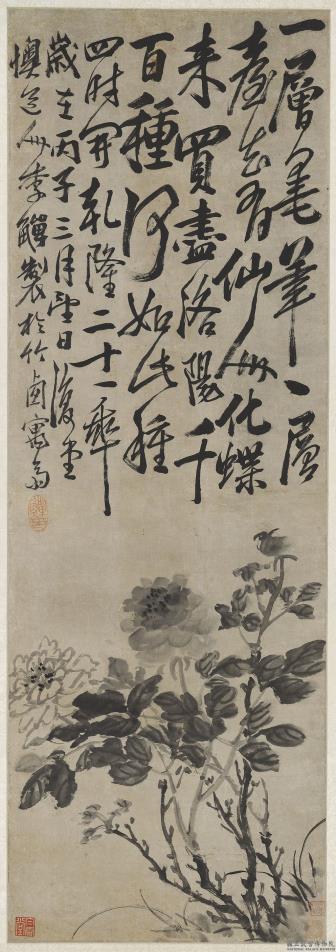 一層毫筆一層
臺知有仙人化蝶
来買盡洛陽千
百種何如此種
四時開乾隆二十一年
歲在丙子三月望日復堂
懊道人李鱓製於竹西寓齋